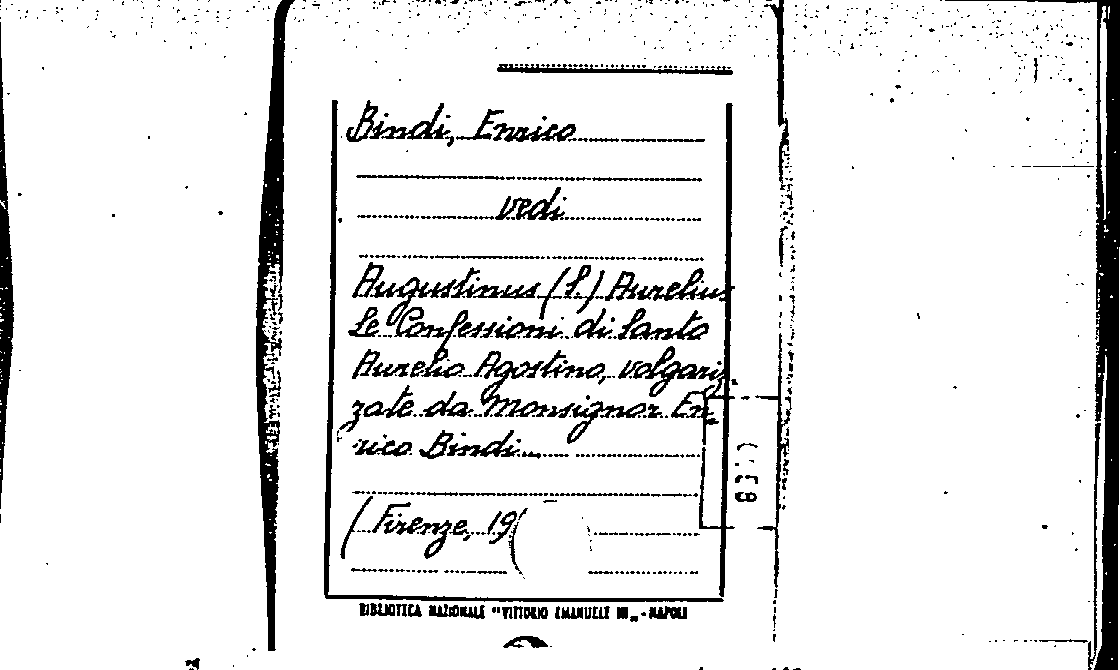 Bindi, Enrico
vedi
Augustinus (S.) Aurelius
Le Confessioni di Santo
Aurelio Agostino, volgariz-
zate da Monsignor En-
rico Bindi...
(Firenze, 19
BIBLIOTECA NAZIONALE "VITTORIO EMANUELE III" - NAPOLI